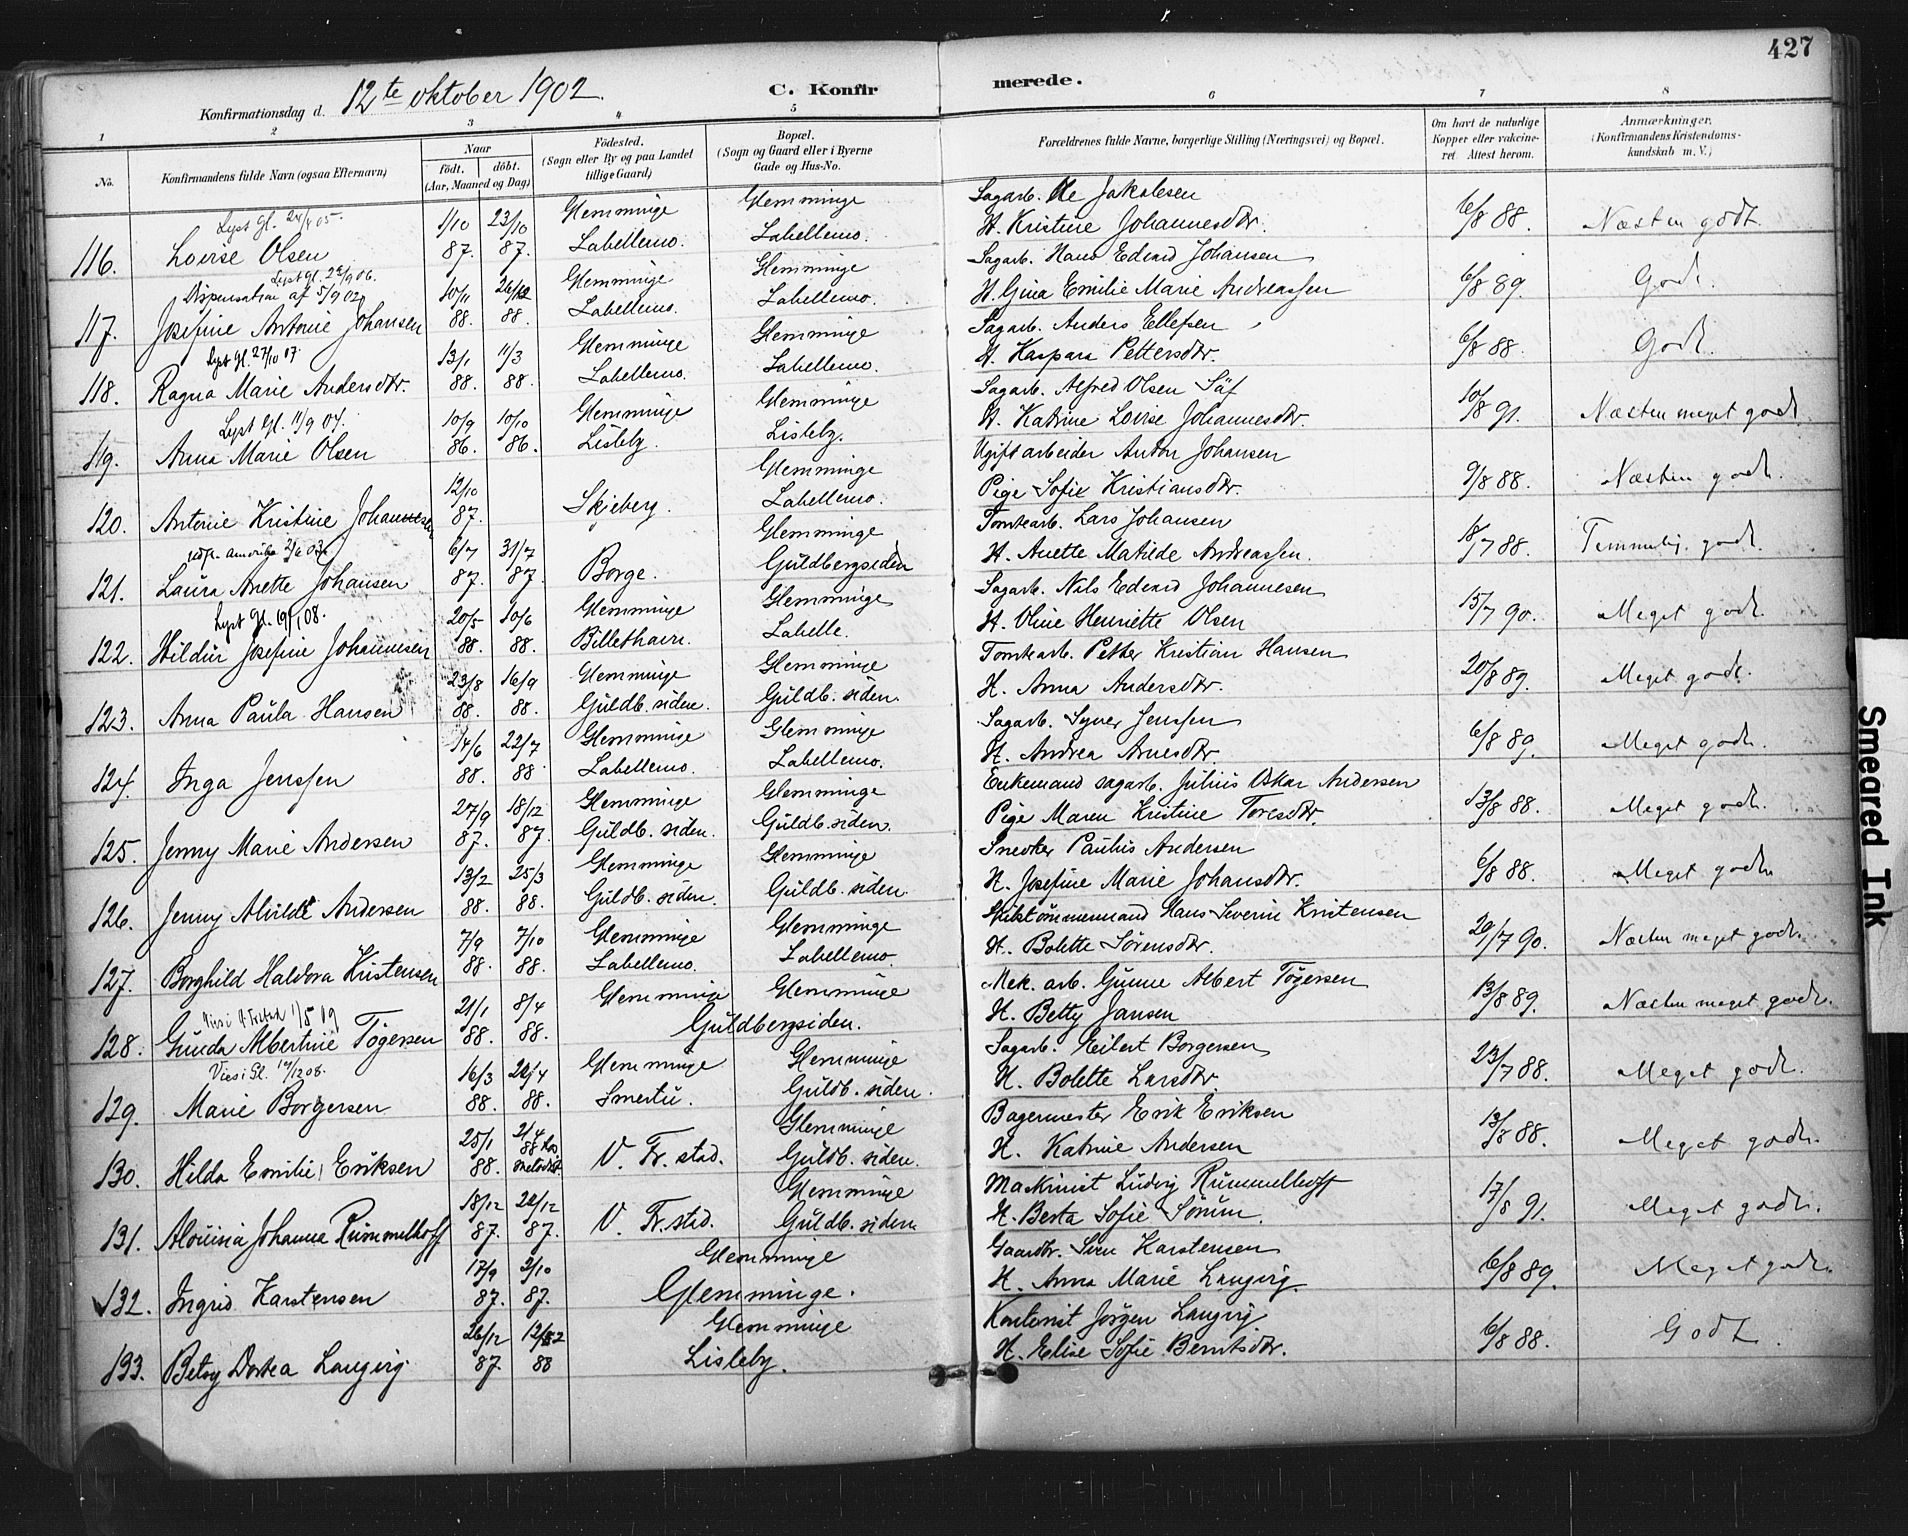 427
Konfirmationsdag d. 12te oktober 1902.
C. Konfirmerede.
1 2 3 4 5 6 7 8
No.
Konfirmandens fulde Navn (ogsaa Efternavn)
Naar
født. døbt.
(Aar, Maaned og Dag)
Fødested.
(Sogn eller By og paa Landet
tillige Gaard)
Bopæl.
(Sogn og Gaard eller i Byerne
Gade og Hus-No.
Forældrenes fulde Navne, borgerlige Stilling (Næringsvei) og Bopæl.
Om havt de naturlige
Kopper eller vakcine-
ret. Attest herom.
Anmærkninger.
(Konfirmandens Kristendoms-
kundskab m. V.)
Lyst Gl. 24/4 05. 1/10 23/10 Glemminge Glemminge Sagarb. Ole Jakobsen 6/8 88. Næsten godt.
116. Lovise Olsen 87. 87. Labellemo. Labellemo. H. Kristine Johannesdtr.
Lyst Gl. 23/9 06.
Dispensation af 5/9 02 10/11 26/12 Glemminge Glemminge Sagarb. Hans Edvard Johansen 6/8 89. Godt.
117. Josefine Antonie Johansen 88. 88. Labellemo. Labellemo. H. Gina Emilie Marie Andreassen
Lyst Gl. 27/10 07 13/1 11/3 Glemminge Glemminge Sagarb. Anders Ellefsen 6/8 88. Godt.
118. Ragna Marie Andersdtr. 88. 88. Labellemo. Labellemo. H. Kaspara Pettersdtr.
Lyst Gl. 11/9 04. 10/9 10/10 Glemminge Glemminge Sagarb. Alfred Olsen Säf 10/8 91. Næsten meget godt
119. Anna Marie Olsen 86. 86. Lisleby. Lisleby. H. Katrine Lovise Johannesdtr.
12/10 Glemminge Ugift arbeider Anton Johansen 9/8 88. Næsten godt.
120. Antonie Kristine Johannesen 87. Skjeberg. Labellemo. Pige Sofie Kristiansdtr.
Amerika 6/7 31/7 Glemminge Tomtearb. Lars Johansen 18/7 88. Temmelig godt.
121. Laura Anette Johansen 87. 87. Borge. Guldbergsiden H. Anette Matilde Andreassen.
Lyst Gl. 08. 20/5 10/6 Glemminge Glemminge Sagarb. Nils Edvard Johannesen 15/7 90. Meget godt.
122. Hildur Josefine Johannesen 88. 88. Billethavn. Labelle. H. Oline Henriette Olsen
23/8 16/9 Glemminge Glemminge Tomtearb. Petter Kristian Hansen 20/8 89. Meget godt.
123. Anna Paula Hansen 88. 88. Guldb. siden. Guldb. siden. H. Anna Andersdtr.
14/6 22/7 Glemminge Glemminge Sagarb. Syver Jenssen 6/8 89. Meget godt.
124. Inga Jenssen 88. 88. Labellemo. Labellemo. H. Andrea Arnesdtr.
27/9 18/12 Glemminge Glemminge Enkemand sagarb. Julius Oskar Andersen 13/8 88. Meget godt.
125. Jenny Marie Andersen 87. 87. Guldb. siden. Guldb. siden. Pige Maren Kristine Toresdtr.
13/2 25/3 Glemminge Glemminge Snedker Paulus Andersen 6/8 88. Meget godt.
126. Jenny Alvilde Andersen 88. 88. Guldb. siden. Guldb. siden. H. Josefine Marie Johansdtr.
7/9 7/10 Glemminge Glemminge Skibstømmermand Hans Severin Kristensen 29/7 90. Næsten meget godt.
127. Borghild Haldora Kristensen 88. 88. Labellemo. Labellemo. H. Bolette Sørensdtr.
1/5 09 21/1 8/4 Glemminge Glemminge Mek. arb. Gunne Albert Tøgersen 13/8 89. Næsten meget godt.
128. Gunda Albertine Tøgersen 88. 88. Guldbergsiden. H. Betty Jansen
Vies i Gl. 08. 16/3 22/4 Glemminge Glemminge Sagarb. Eilert Borgersen 23/7 88. Meget godt.
129. Marie Borgersen 88. 88. Smertu. Guldb. siden. H. Bolette Larsdtr.
25/1 21/4 Glemminge Bagermester Erik Eriksen 13/8 88. Meget godt.
130. Hilda Emilie Eriksen 88. 88 hos metodist V. Fr. stad. Guldb. siden. H. Katrine Andersen
18/12 22/12 Glemminge Maskinist Ludvig Rummelhoff 17/8 91. Meget godt.
131. Alouisia Johanna Rummelhoff 87. 87. V. Fr. stad. Guldb. siden H. Berta Sofie Sørum.
17/9 2/10 Glemminge Gaardbr. Sven Karstensen 6/8 89. Meget godt.
132. Ingrid Karstensen 87. 87. Glemminge. H. Anna Marie Langvig.
26/12 Glemminge Kontorist Jørgen Langvig 6/8 88. Godt
133. Betsy Dortea Langvig. 87. 88 Lisleby. H. Elise Sofie Berntsdtr.
Smeared Ink